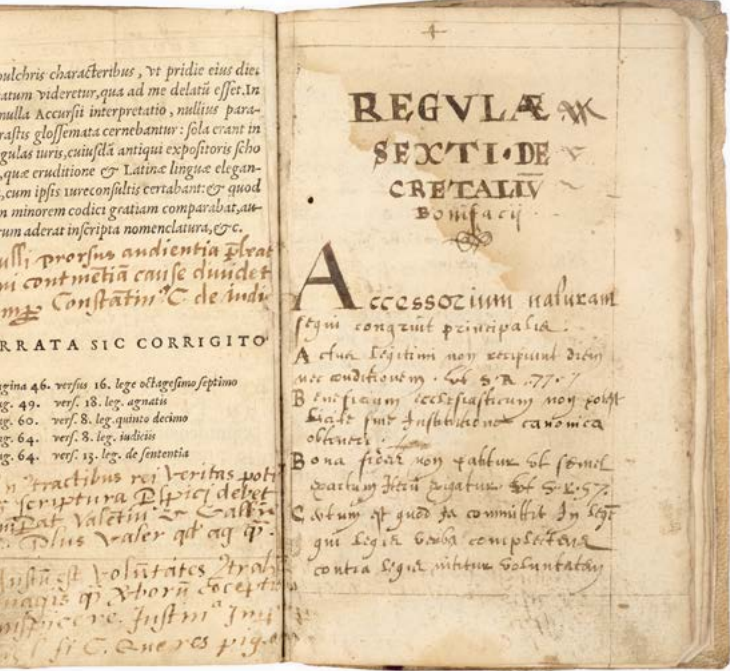 pulchris characteribus, vt pridie eius diei
atum videretur, qua ad me delatū esset. In
nulla Accursii interpretatio, nullius para-
rastis glossemata cernebantur: sola erant in
gulas iuris, cuiusdā antiqui expositoris scho
, quæ eruditione & Latinæ linguæ elegan-
, cum ipsis iureconsultis certabant: & quod
n minorem codici gratiam comparabat, au-
rum aderat inscripta nomenclatura, &c.
prorsus audientia
continentiā cause
Constātin⁹ C. de iudi
RRATA SIC CORRIGITO
gina 46. versus 16. lege octagesimo septimo
ag. 49. vers. 18. leg. agnatis
ag. 60. vers. 8. leg. quinto decimo
ag. 64. vers. 8. leg. iudiciis
ag. 64. vers. 13. leg. de sententia
tractibus rei veritas poti
scriptura debet
Plus valer
est volūtates
C. Que res pig
REGVLÆ
SEXTI · DE
CRETALIV̄
Bonifacij
Accessorium naturam
sequi congruit principalis.
Actus legitimi non recipiunt diem
nec conditionem. vt S. R. 77.
Beneficium ecclesiasticum non potest
licite sine Institutione canonica
obtineri.
Bona fides non patitur vt semel
exactum Iterū exigatur vt S. R. 57.
Certum est quod is committit In legē
qui legis verba complectens
contra legis nititur voluntatem